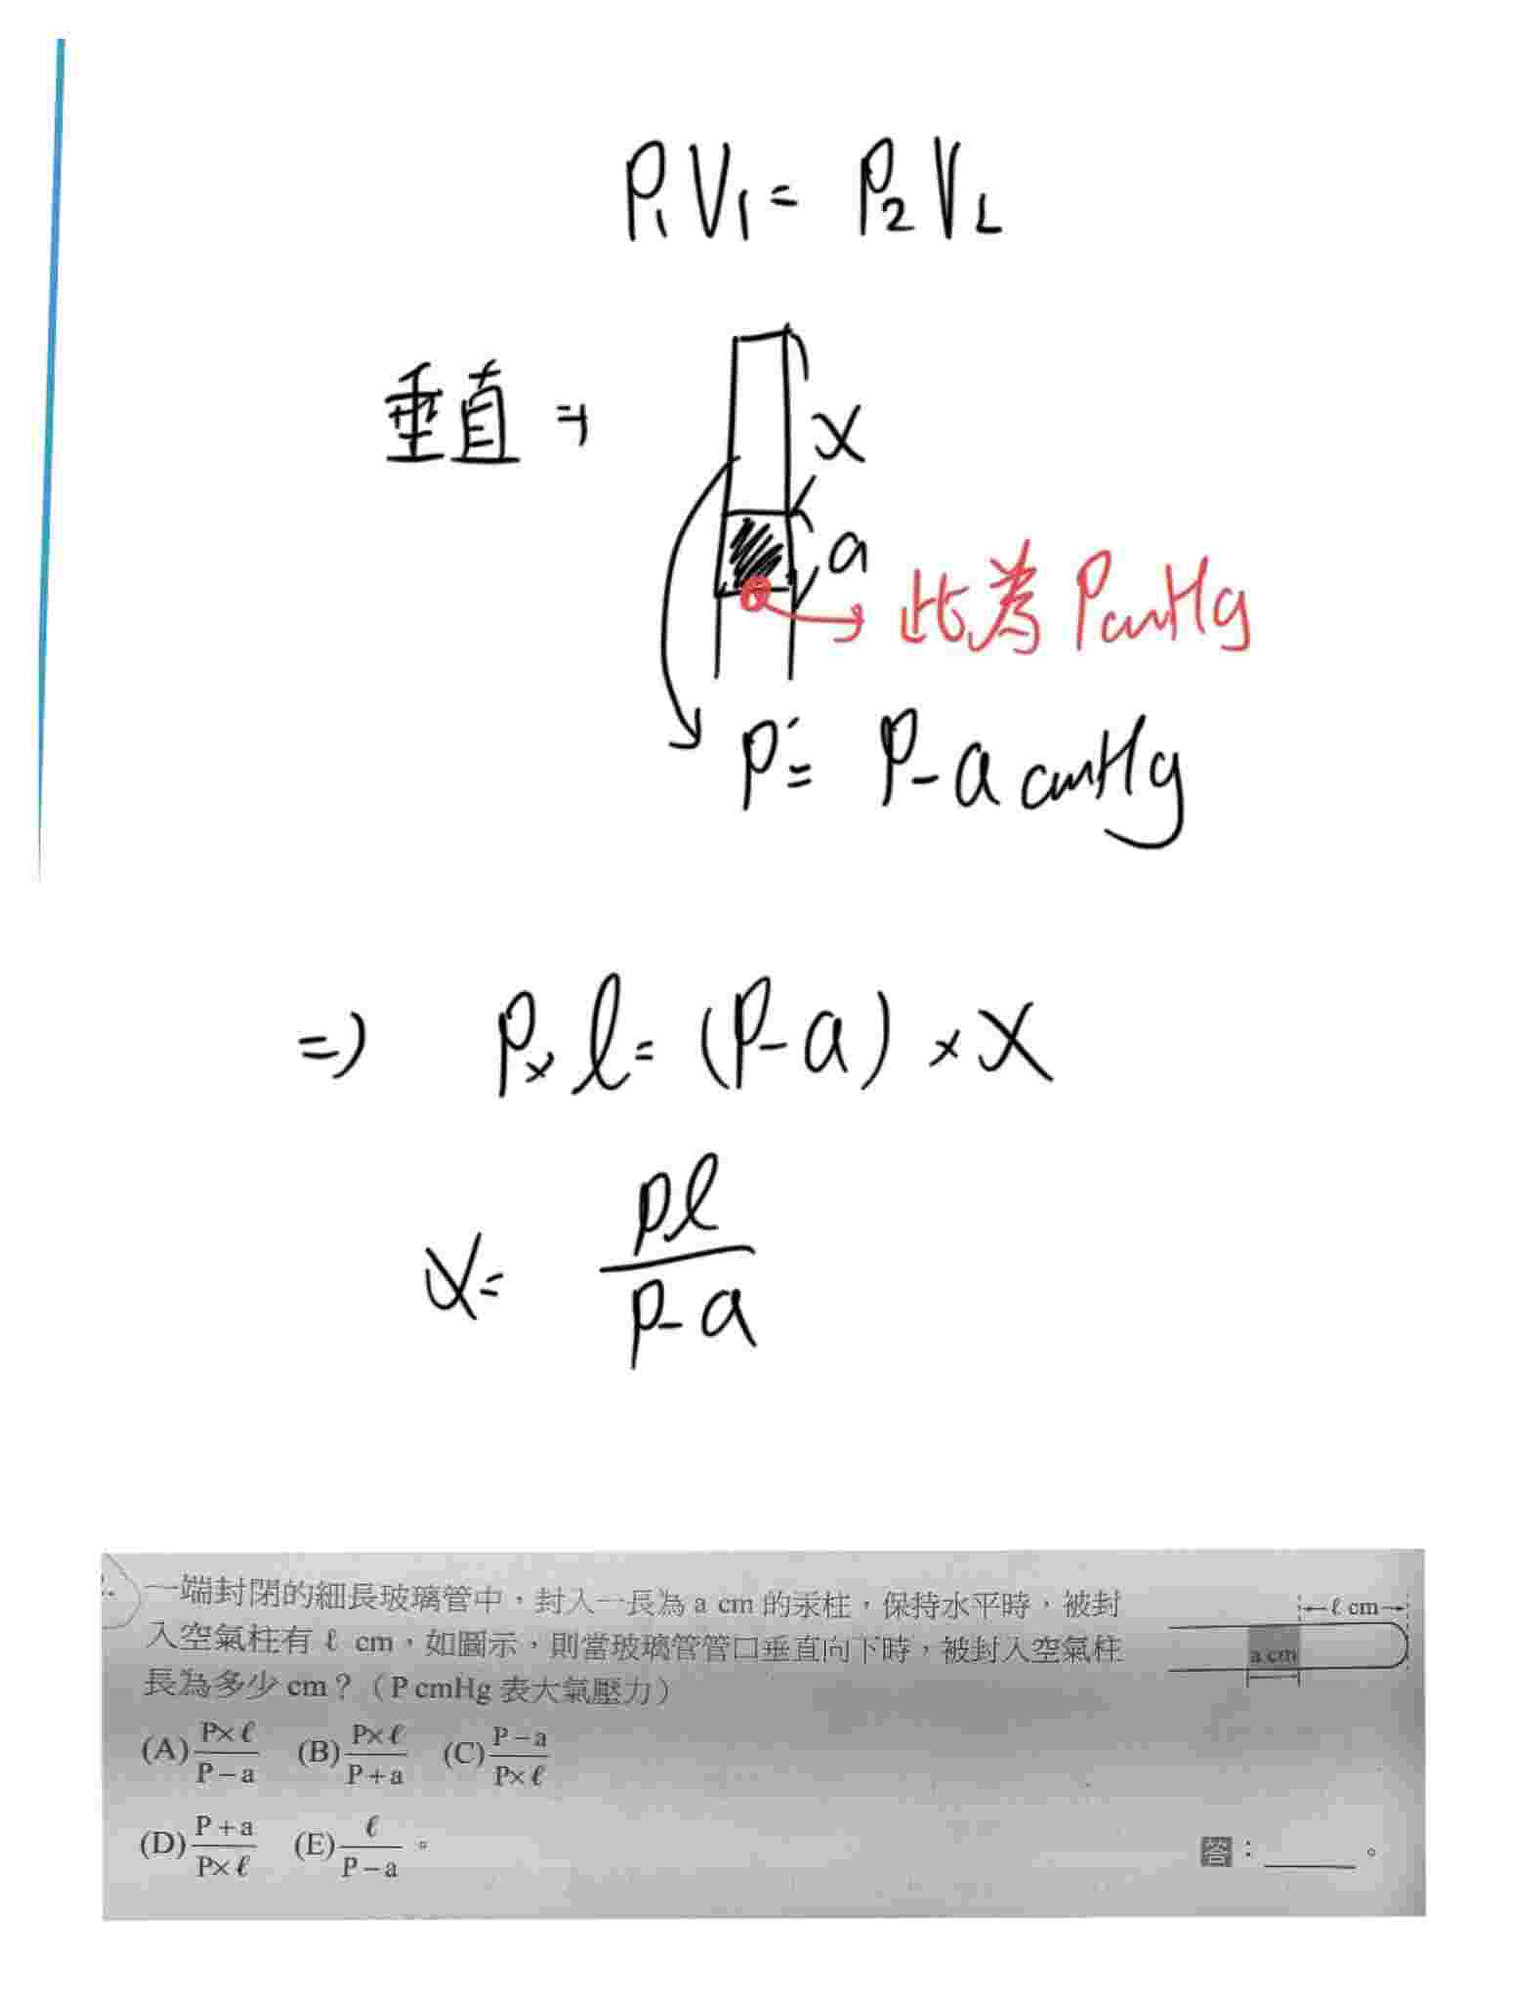 P₁V₁ = P₂V₂
垂直 ⇒
x
a
此為 PcmHg
P' = P - a cmHg
⇒ P × l = (P - a) × x
x = Pl / P - a
一端封閉的細長玻璃管中，封入一長為 a cm 的汞柱，保持水平時，被封
入空氣柱有 ℓ cm，如圖示，則當玻璃管管口垂直向下時，被封入空氣柱
長為多少 cm？（P cmHg 表大氣壓力）
ℓ cm
a cm
(A) P×ℓ / P－a (B) P×ℓ / P＋a (C) P－a / P×ℓ
(D) P＋a / P×ℓ (E) ℓ / P－a 。
答：______。